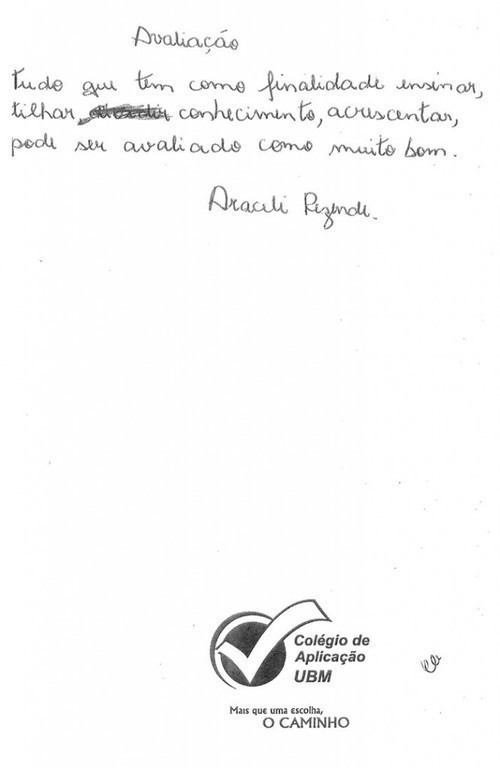 Avaliação
Tudo que tem como finalidade ensinar,
tilhar, conhecimento, acrescentar,
pode ser avaliado como muito bom.
Araceli Rezende.
Colégio de
Aplicação
UBM
Mais que uma escolha,
O CAMINHO